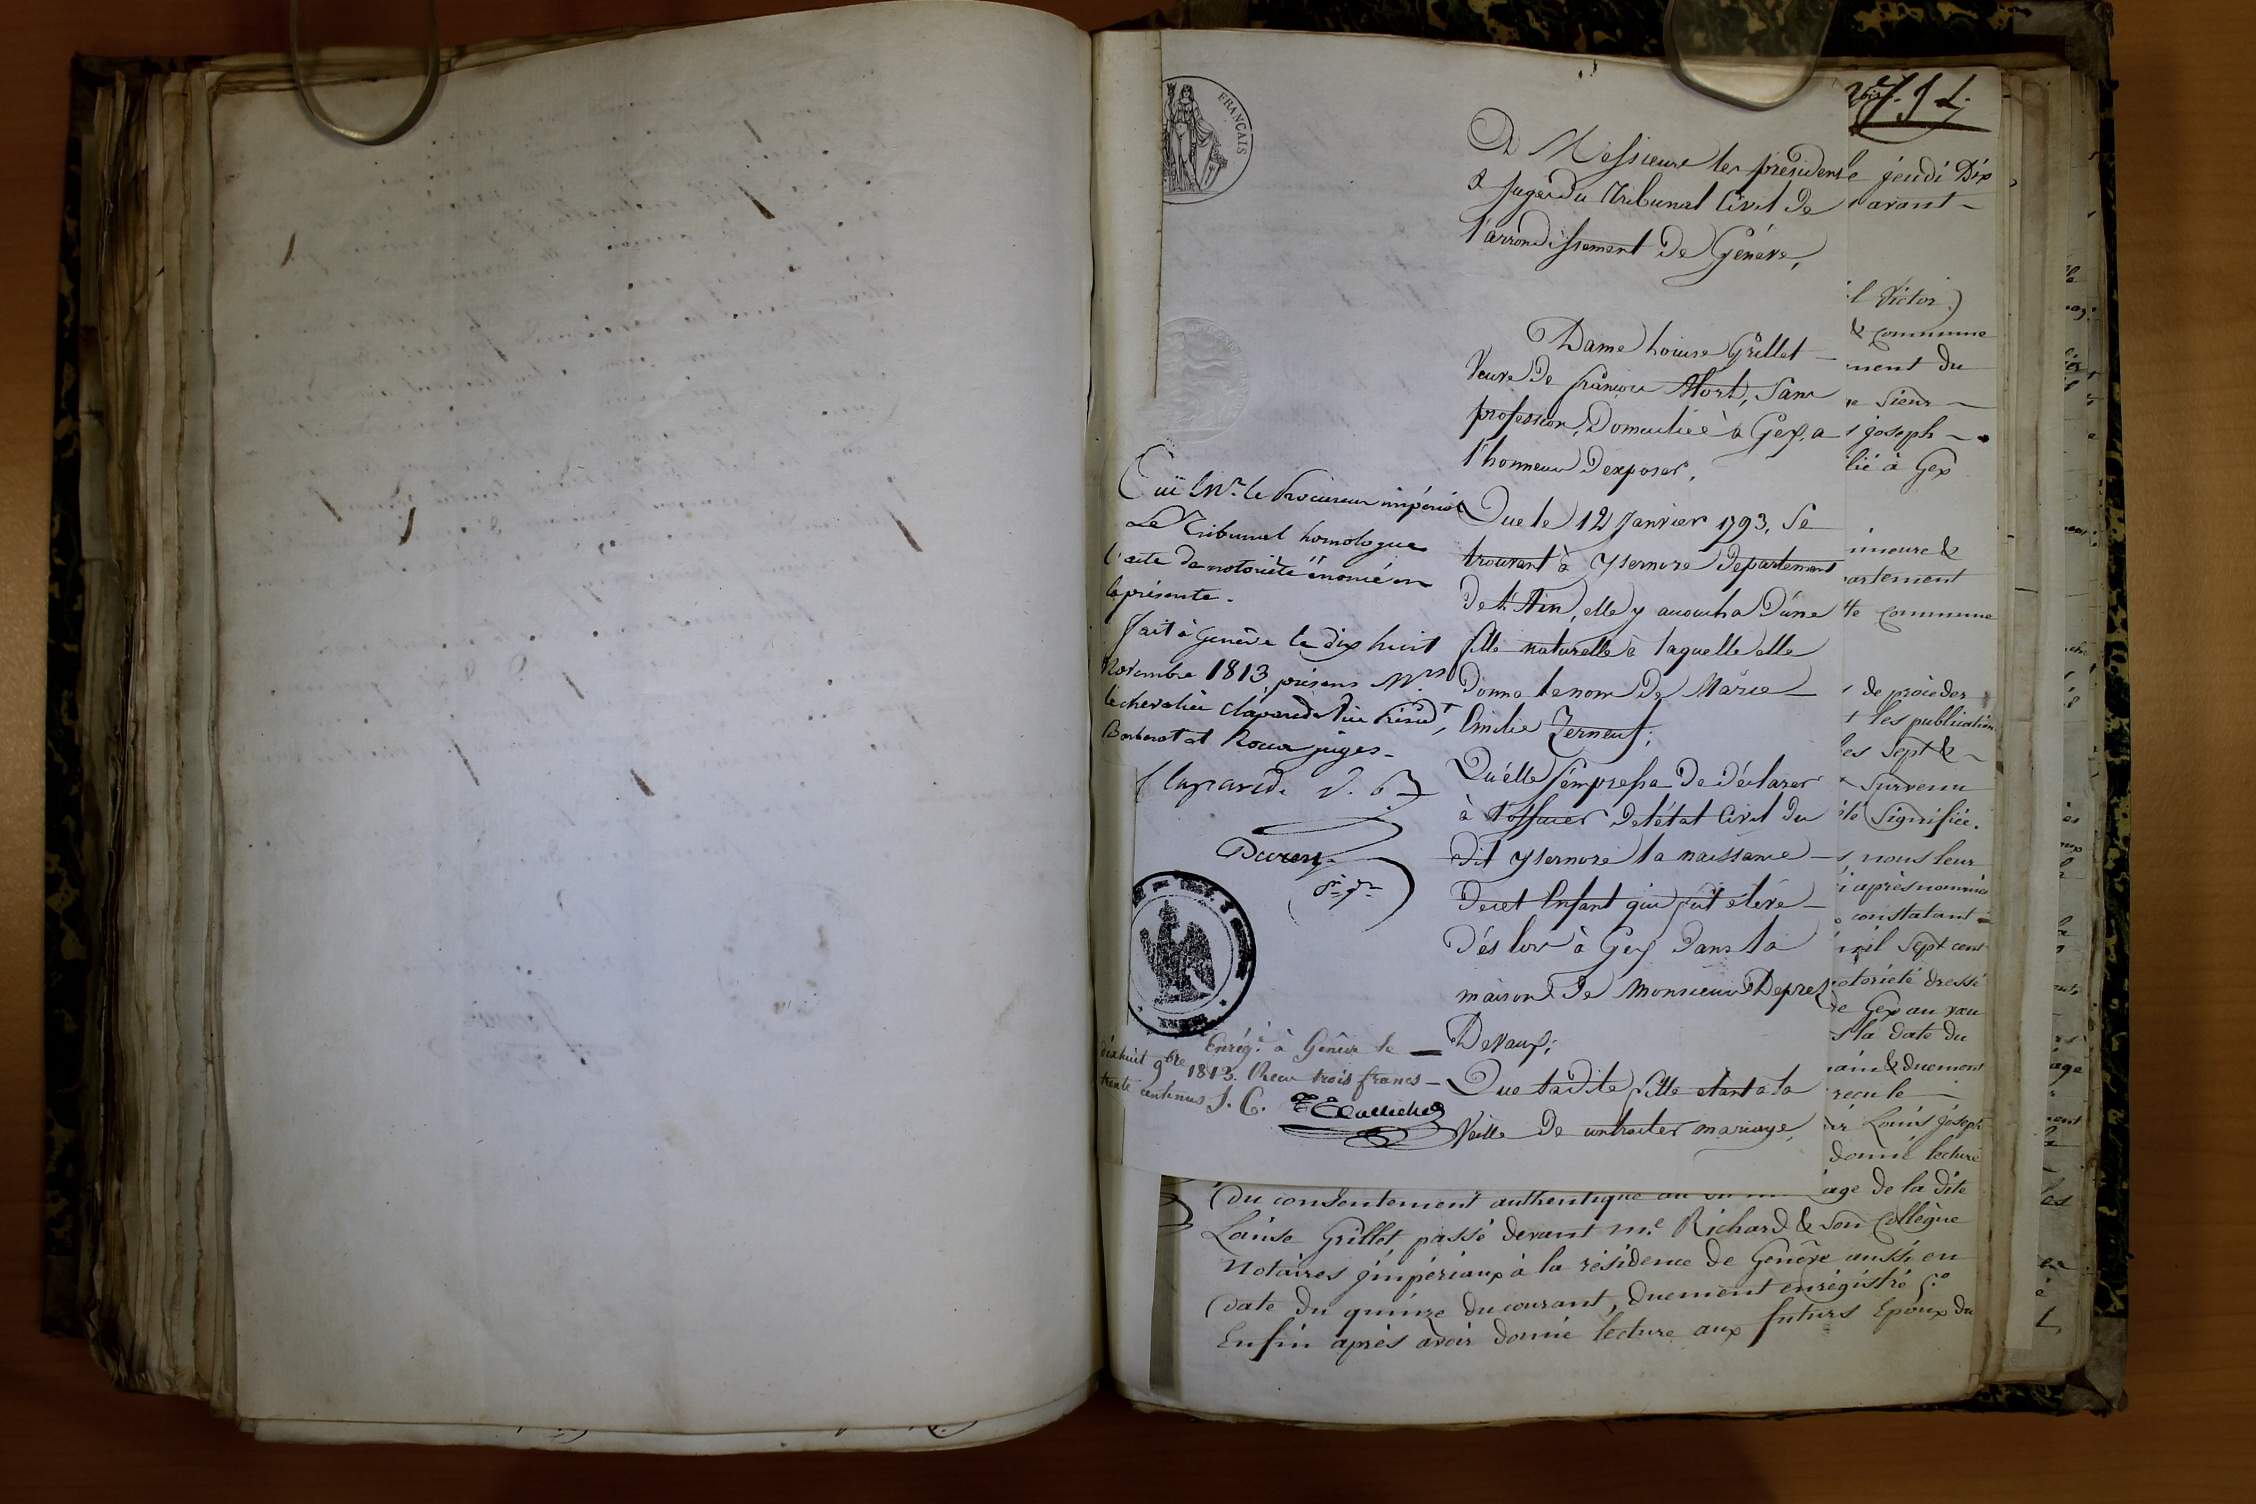 FRANCAIS
A Messieurs les présidens
& Juges du Tribunal Civil de
l'arrondissement de Genève,
Dame Louise Grillet
Veuve de françois Mort, Sans
profession, Domiciliée à Gex, a
l'honneur d'exposer,
Que le 12 Janvier 1793, Se
trouvant à ysernore Departement
de l'Ain, elle y accoucha d'une
fille naturelle à laquelle elle
donna le nom de Marie
Emilie
Qu'elle s'empressa de déclarer
à l'officier de l'état Civil du
dit ysernore la naissance
de cet Enfant qui fut élevé
dés lors à Gex dans la
maison de Monsieur Deprez
Devaux;
Que ladite fille etant à la
Veille de contracter mariage,
Ouï Mr. le Procureur impérial
Le Tribunal homologue
l'acte de notoriété énoncé en
la présente.
Fait à Genève le dix huit
Novembre 1813, présens Mrs
le chevalier Claparede Vice Présidt,
et Roux juges.
Claparede V. P.
Enregé. à Genève le
dixhuit 9bre 1813. Reçu trois francs
trente centimes S. C.
le jeudi Dix
avant
l Victor)
& commune
ment du
Sieur
joseph
lié à Gex
mineure &
artement
te commune
de procéder
t les publications
es Sept &
Survenu
été Signifiée.
s nous leur
i après nommées
constatant
mil Sept cent
otoriété dressé
de Gex au vau
s la date du
& duement
reçu le
Louis joseph
donné lecture
du consentement authentique au age de la dite
Louise Grillet passé devant me. Richard & Son Collègue
Notaires jmpériaux à la résidence de Genève aussi en
date du quinze du courant, duement enrégistré
Enfin après avoir donné lecture aux futurs Epoux du